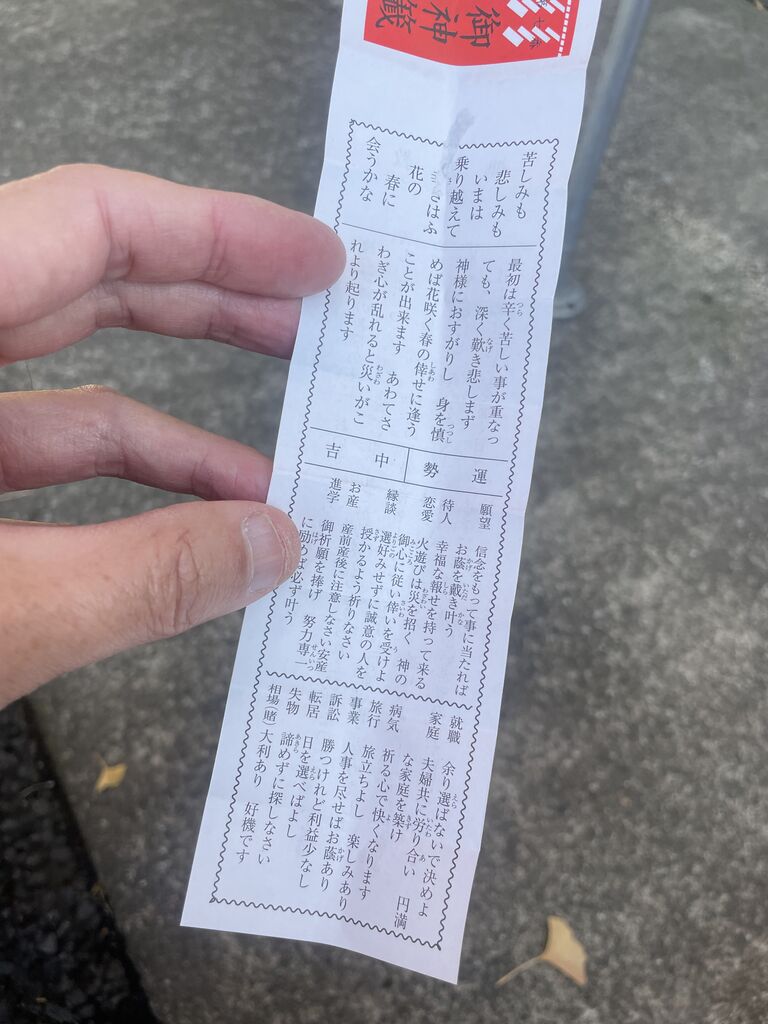 御神籤
苦しみも
悲しみも
いまは
乗り越えて
花の
春に
会うかな
最初は辛く苦しい事が重なっ
ても、深く歎き悲しまず
神様におすがりし　身を慎
めば花咲く春の倖せに逢う
ことが出来ます　あわてさ
わぎ心が乱れると災いがこ
れより起ります
運勢
中吉
願望　信念をもって事に当たれば
お蔭を戴き叶う
待人　幸福な報せを持って来る
恋愛　火遊びは災を招く　神の
御心に従い倖いを受けよ
縁談　選好みせずに誠意の人を
授かるよう祈りなさい
お産　産前産後に注意しなさい安産
進学　御祈願を捧げ　努力専一
に励めば必ず叶う
就職　余り選ばないで決めよ
家庭　夫婦共に労り合い　円満
な家庭を築け
病気　祈る心で快くなります
旅行　旅立ちよし　楽しみあり
事業　人事を尽せばお蔭あり
訴訟　勝つけれど利益少なし
転居　日を選べばよし
失物　諦めずに探しなさい
相場(賭)　大利あり　好機です